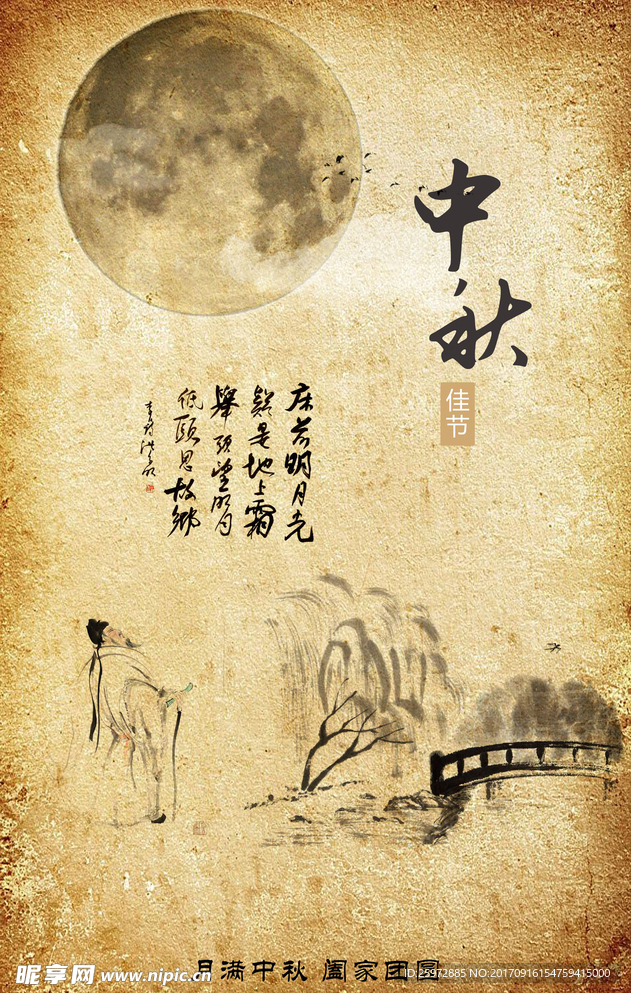 中秋
佳节
床前明月光
疑是地上霜
舉頭望明月
低頭思故鄉
月满中秋 阖家团圆
昵享网 www.nipic.cn
ID:25972885 NO:20170916154759415000